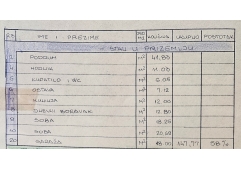 IME I PREZIME KOLIČINA UKUPNO POSTOTAK
- STAN U PRIZEMLJU -
PODRUM m² 41.85
HODNIK m² 11.05
KUPATILO, WC m² 5.05
OSTAVA m² 7.12
KUHINJA m² 12.00
DNEVNI BORAVAK m² 12.80
SOBA m² 18.25
SOBA m² 20.69
GARAŽA m² 18.00 147,77 58%